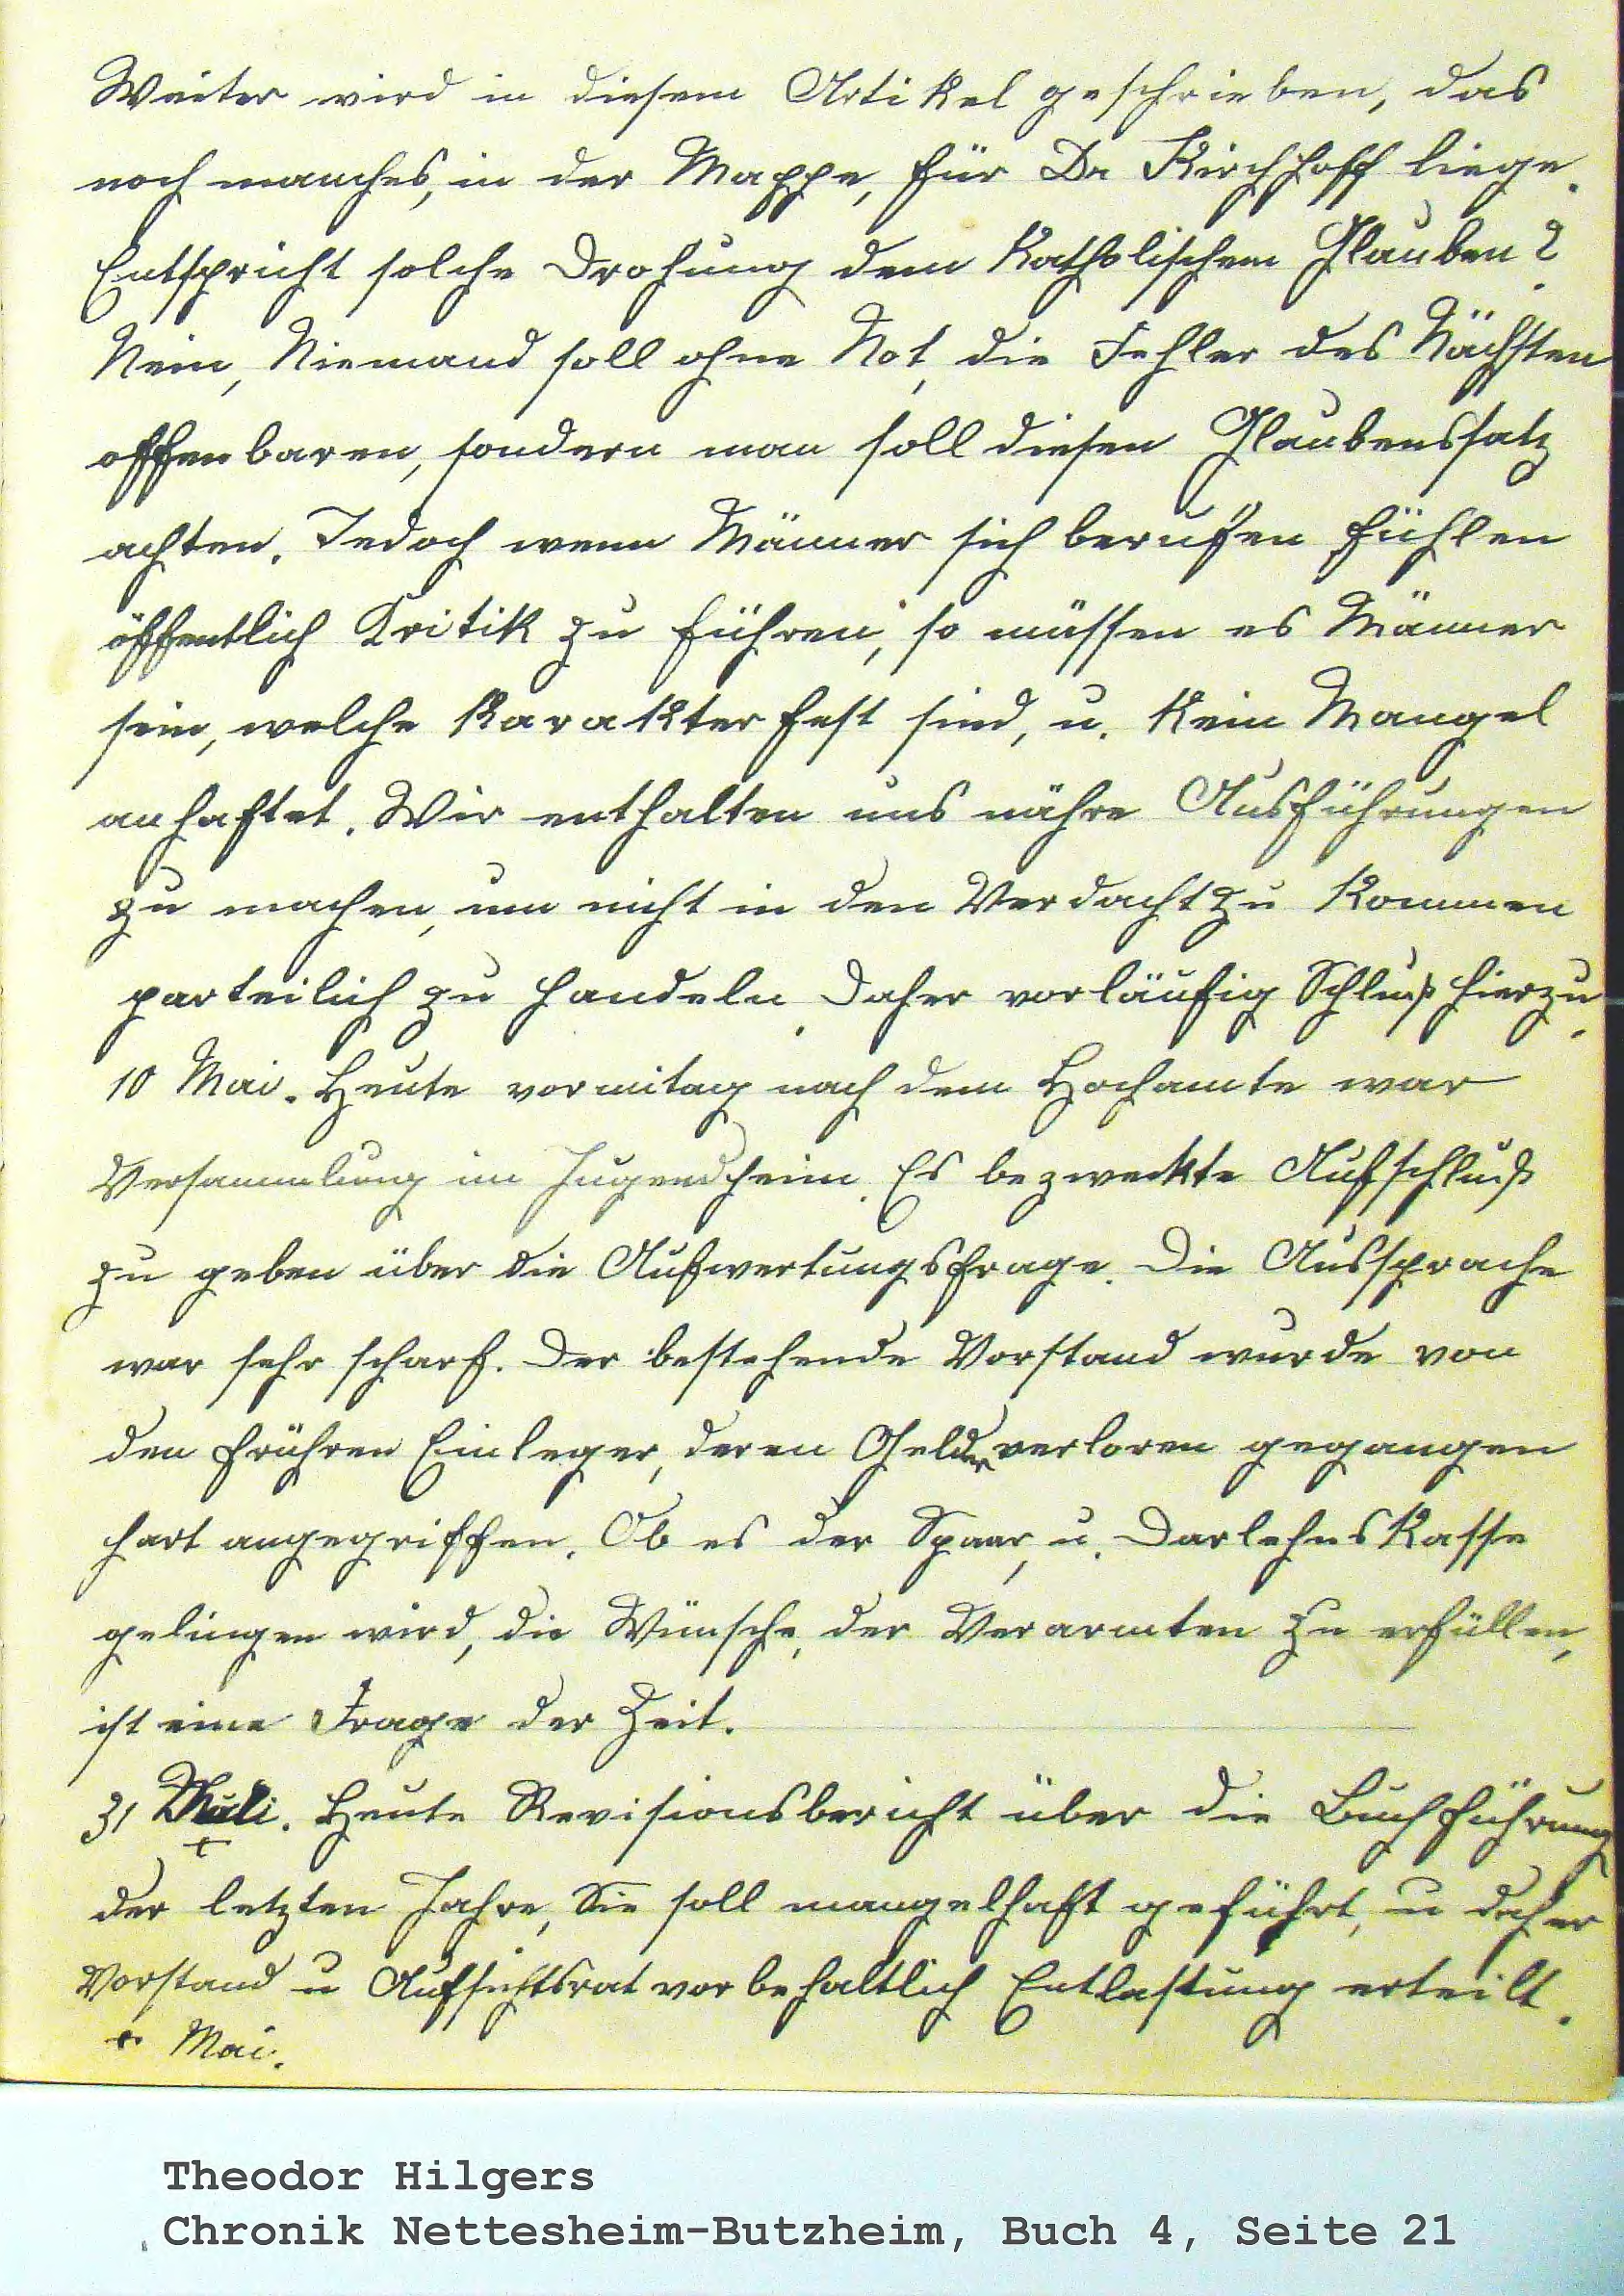 Weiter wird in diesem Artikel geschrieben, das
noch manches, in der Mappe, für Dr Kirchhoff liege.
Entspricht solche Drohung dem Katholischem Glauben?
Nein, Niemand soll ohne Not, die Fehler des Nächsten
offenbaren, sondern man soll diesen Glaubenssatz
achten. Jedoch wenn Männer sich berufen fühlen
öffentlich Kritik zu führen, so müssen es Männer
sein, welche Karakter fest sind, u. kein Mangel
anhaftet. Wir enthalten uns nähre Ausführungen
zu machen, um nicht in den Verdacht zu kommen
parteilich zu handeln. Daher vorläufig Schluß hierzu.
10 Mai. Heute vormitag nach dem Hochamte war
Versammlung im Jugendheim. Es bezweckte Aufschluß
zu geben über die Aufwertungsfrage. Die Aussprache
war sehr scharf. Der bestehende Vorstand wurde von
den frühren Einleger, deren Gelder verloren gegangen
hart angegriffen. Ob es der Spaar, u. Darlehns Kasse
gelingen wird, die Wünsche, der Verarmten zu erfüllen,
ist eine Frage der Zeit.
31 . Heute Revisionsbericht über die Buchführung
der letzten Jahre, Sie soll mangelhaft geführt, u daher
Vorstand u Aufsichtsrat vorbehaltlich Entlastung erteilt.
+ Mai.
Theodor Hilgers
Chronik Nettesheim-Butzheim, Buch 4, Seite 21